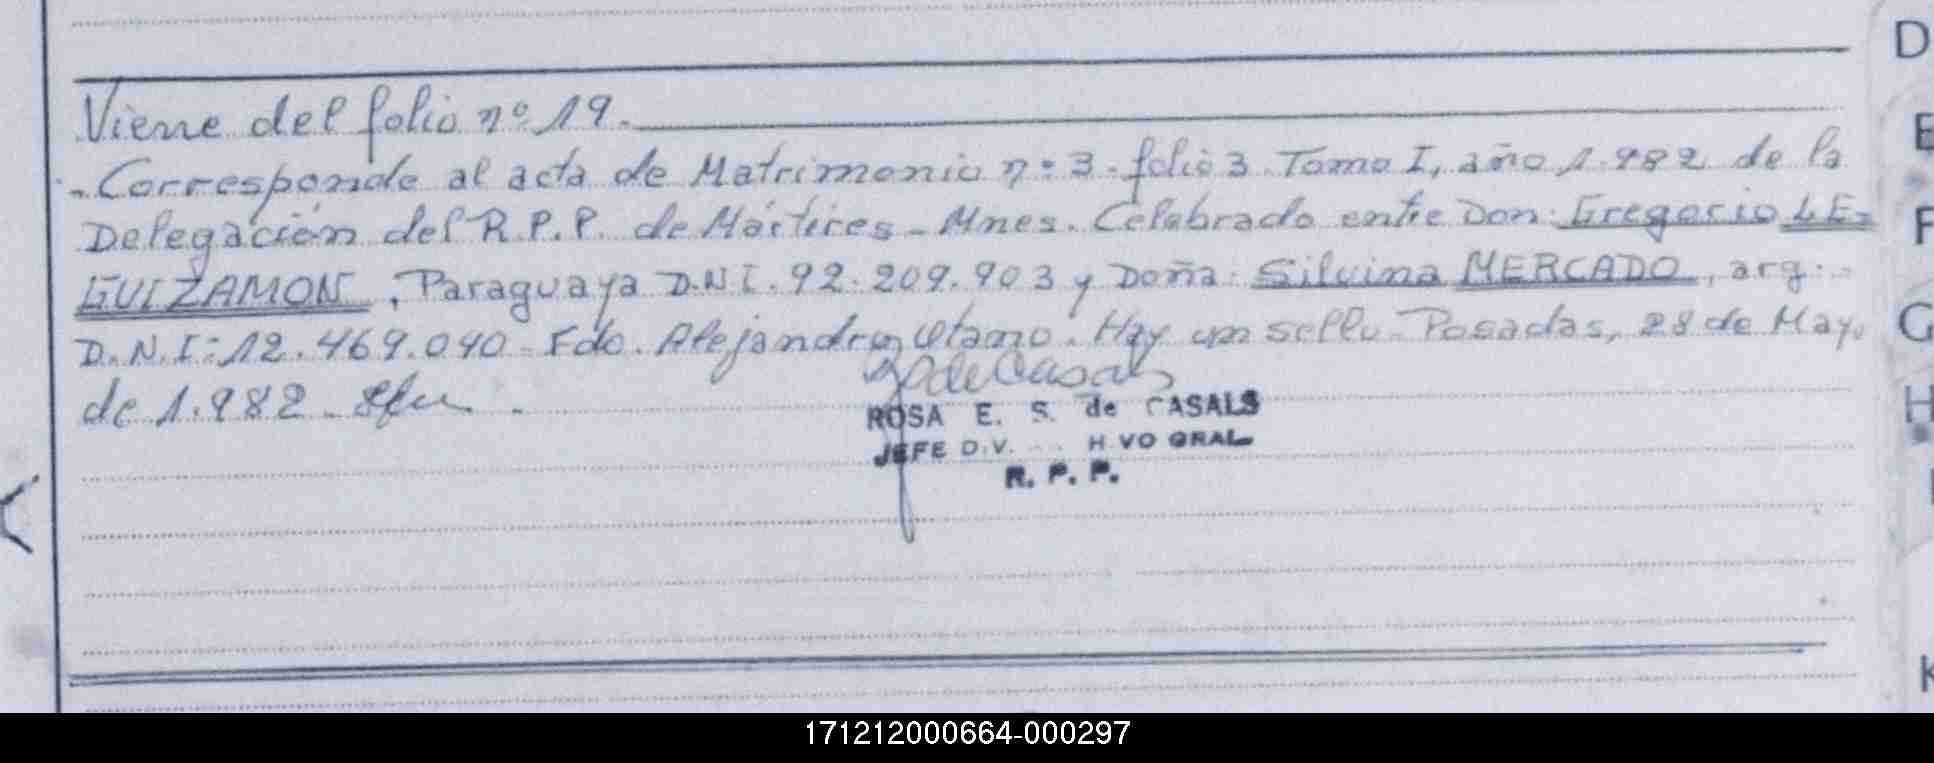 Viene del folio nº 19.
Corresponde al acta de Matrimonio nº 3 - folio 3 Tomo I, año 1.982 de la
Delegación del R.P.P. de Mártires - Mnes. Celebrado entre Don: Gregorio LE=
GUIZAMON, Paraguaya D.N.I. 92.209.903 y Doña: Silvina MERCADO, arg.
D.N.I: 12.469.040 - Fdo. Alejandro Hay un sello - Posadas, 28 de Mayo
de 1.982 -
de Casals
ROSA E. S. de CASALS
JEFE D.V. H VO GRAL
R. P. P.
D
E
F
G
H
K
171212000664-000297